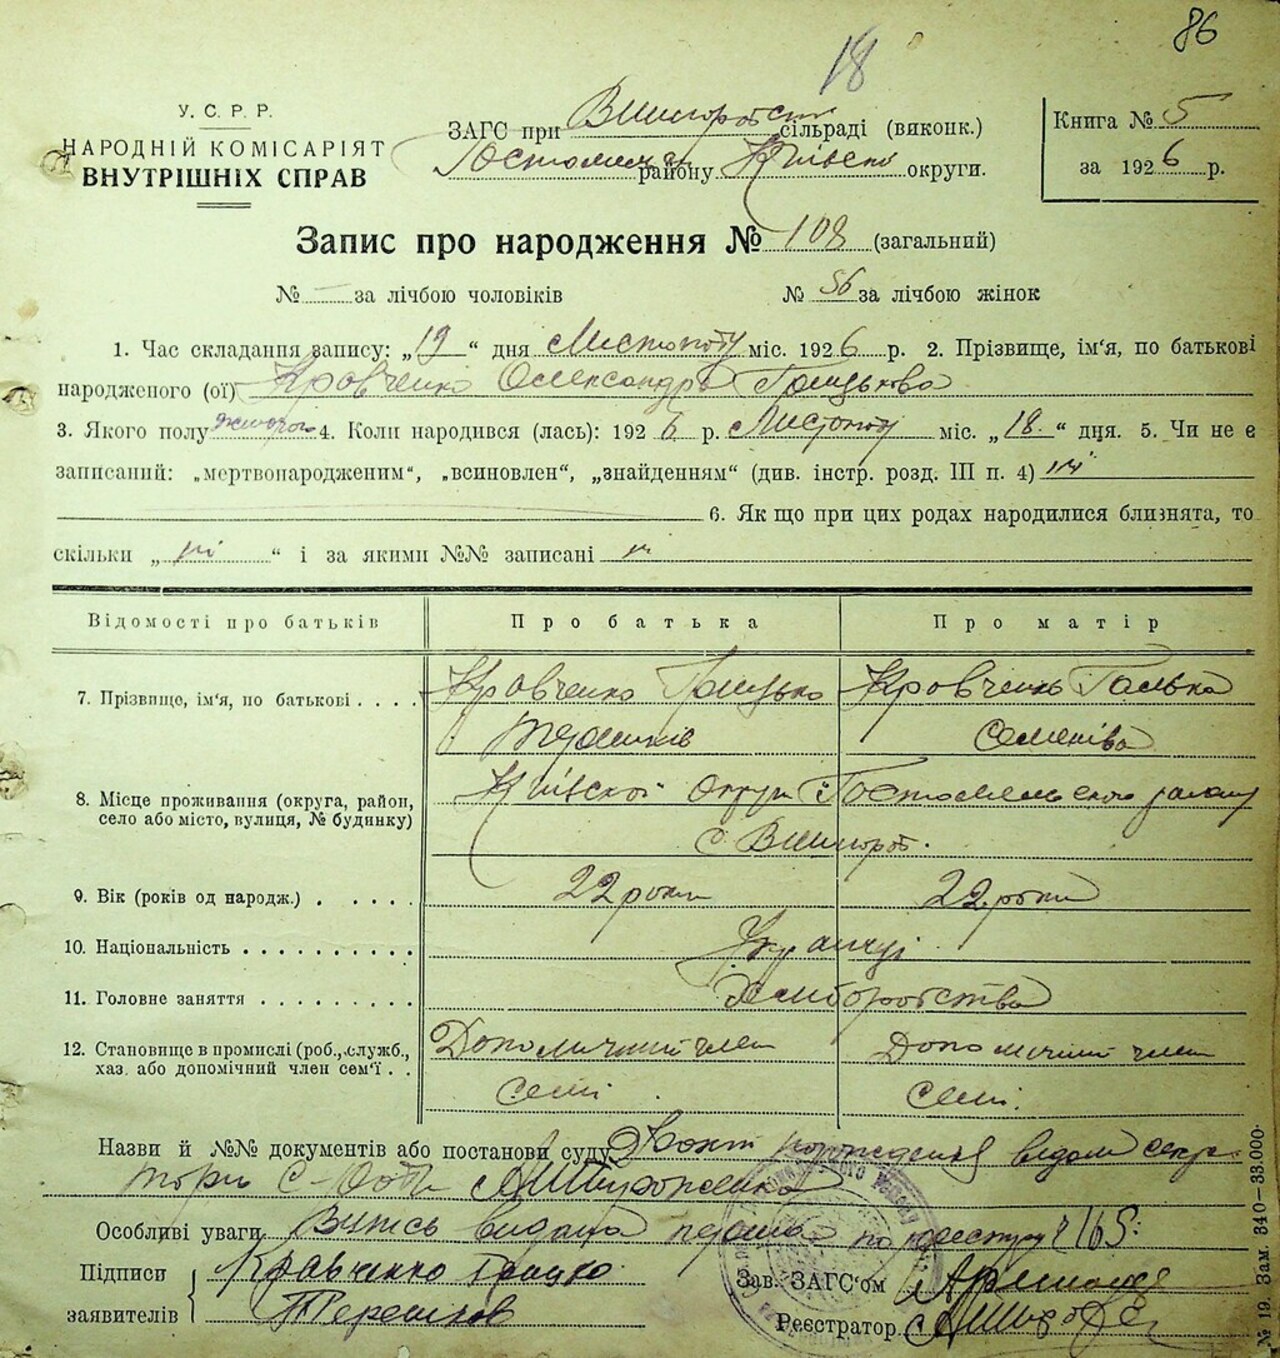 86
18
У. С. Р. Р.
НАРОДНІЙ КОМІСАРІЯТ
ВНУТРІШНІХ СПРАВ
ЗАГС при Вишгородск сільраді (виконк.)
району Київско округи.
Книга № 5
за 1926 р.
Запис про народження № 108 (загальний)
№ — за лічбою чоловіків № 56 за лічбою жінок
1. Час складання запису: „19“ дня Листопаду міс. 1926 р. 2. Прізвище, ім'я, по батькові
народженого (ої) Кравченко Олександра Грицькова
3. Якого полу жіночого 4. Коли народився (лась): 1926 р. Листопаду міс. „18.“ дня. 5. Чи не є
записаний: „мертвонародженим“, „всиновлен“, „знайденням“ (див. інстр. розд. III п. 4) ні
6. Як що при цих родах народилися близнята, то
скільки „ні“ і за якими №№ записані
Відомості про батьків Про батька Про матір
7. Прізвище, ім'я, по батькові . . . . Кравченко Грицько Кравченко Галька
Терешків Семенівa
8. Місце проживання (округа, район, село або місто, вулиця, № будинку) Київскої Округи Гостомельского району
с Вишгород.
9. Вік (років од народж.) . . . . . 22 роки 22 роки
10. Національність . . . . . . . . . Українці
11. Головне заняття . . . . . . . . Хліборобства
12. Становище в промислі (роб., служб., хаз. або допомічний член сем'ї . . Допомічний член Допомічний член
семі. семі.
Назви й №№ документів або постанови суду
Особливі уваги Витсь видана перша по реєстру ч 165:
Підписи Кравченко Грицко
заявителів Терешков
Зав. ЗАГС'ом
Реєстратор
№ 19. Зам. 340—33.000.